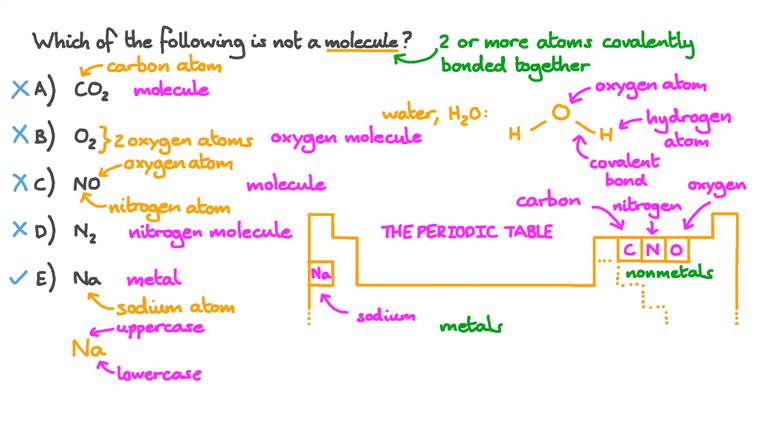 Which of the following is not a molecule?
2 or more atoms covalently
bonded together
carbon atom
A) CO₂ molecule
B) O₂ } 2 oxygen atoms oxygen molecule
oxygen atom
C) NO molecule
nitrogen atom
D) N₂ nitrogen molecule
E) Na metal
sodium atom
uppercase
Na
lowercase
water, H₂O:
oxygen atom
H O H
hydrogen
atom
covalent
bond
carbon
nitrogen
oxygen
THE PERIODIC TABLE
C N O
Na
nonmetals
sodium
metals